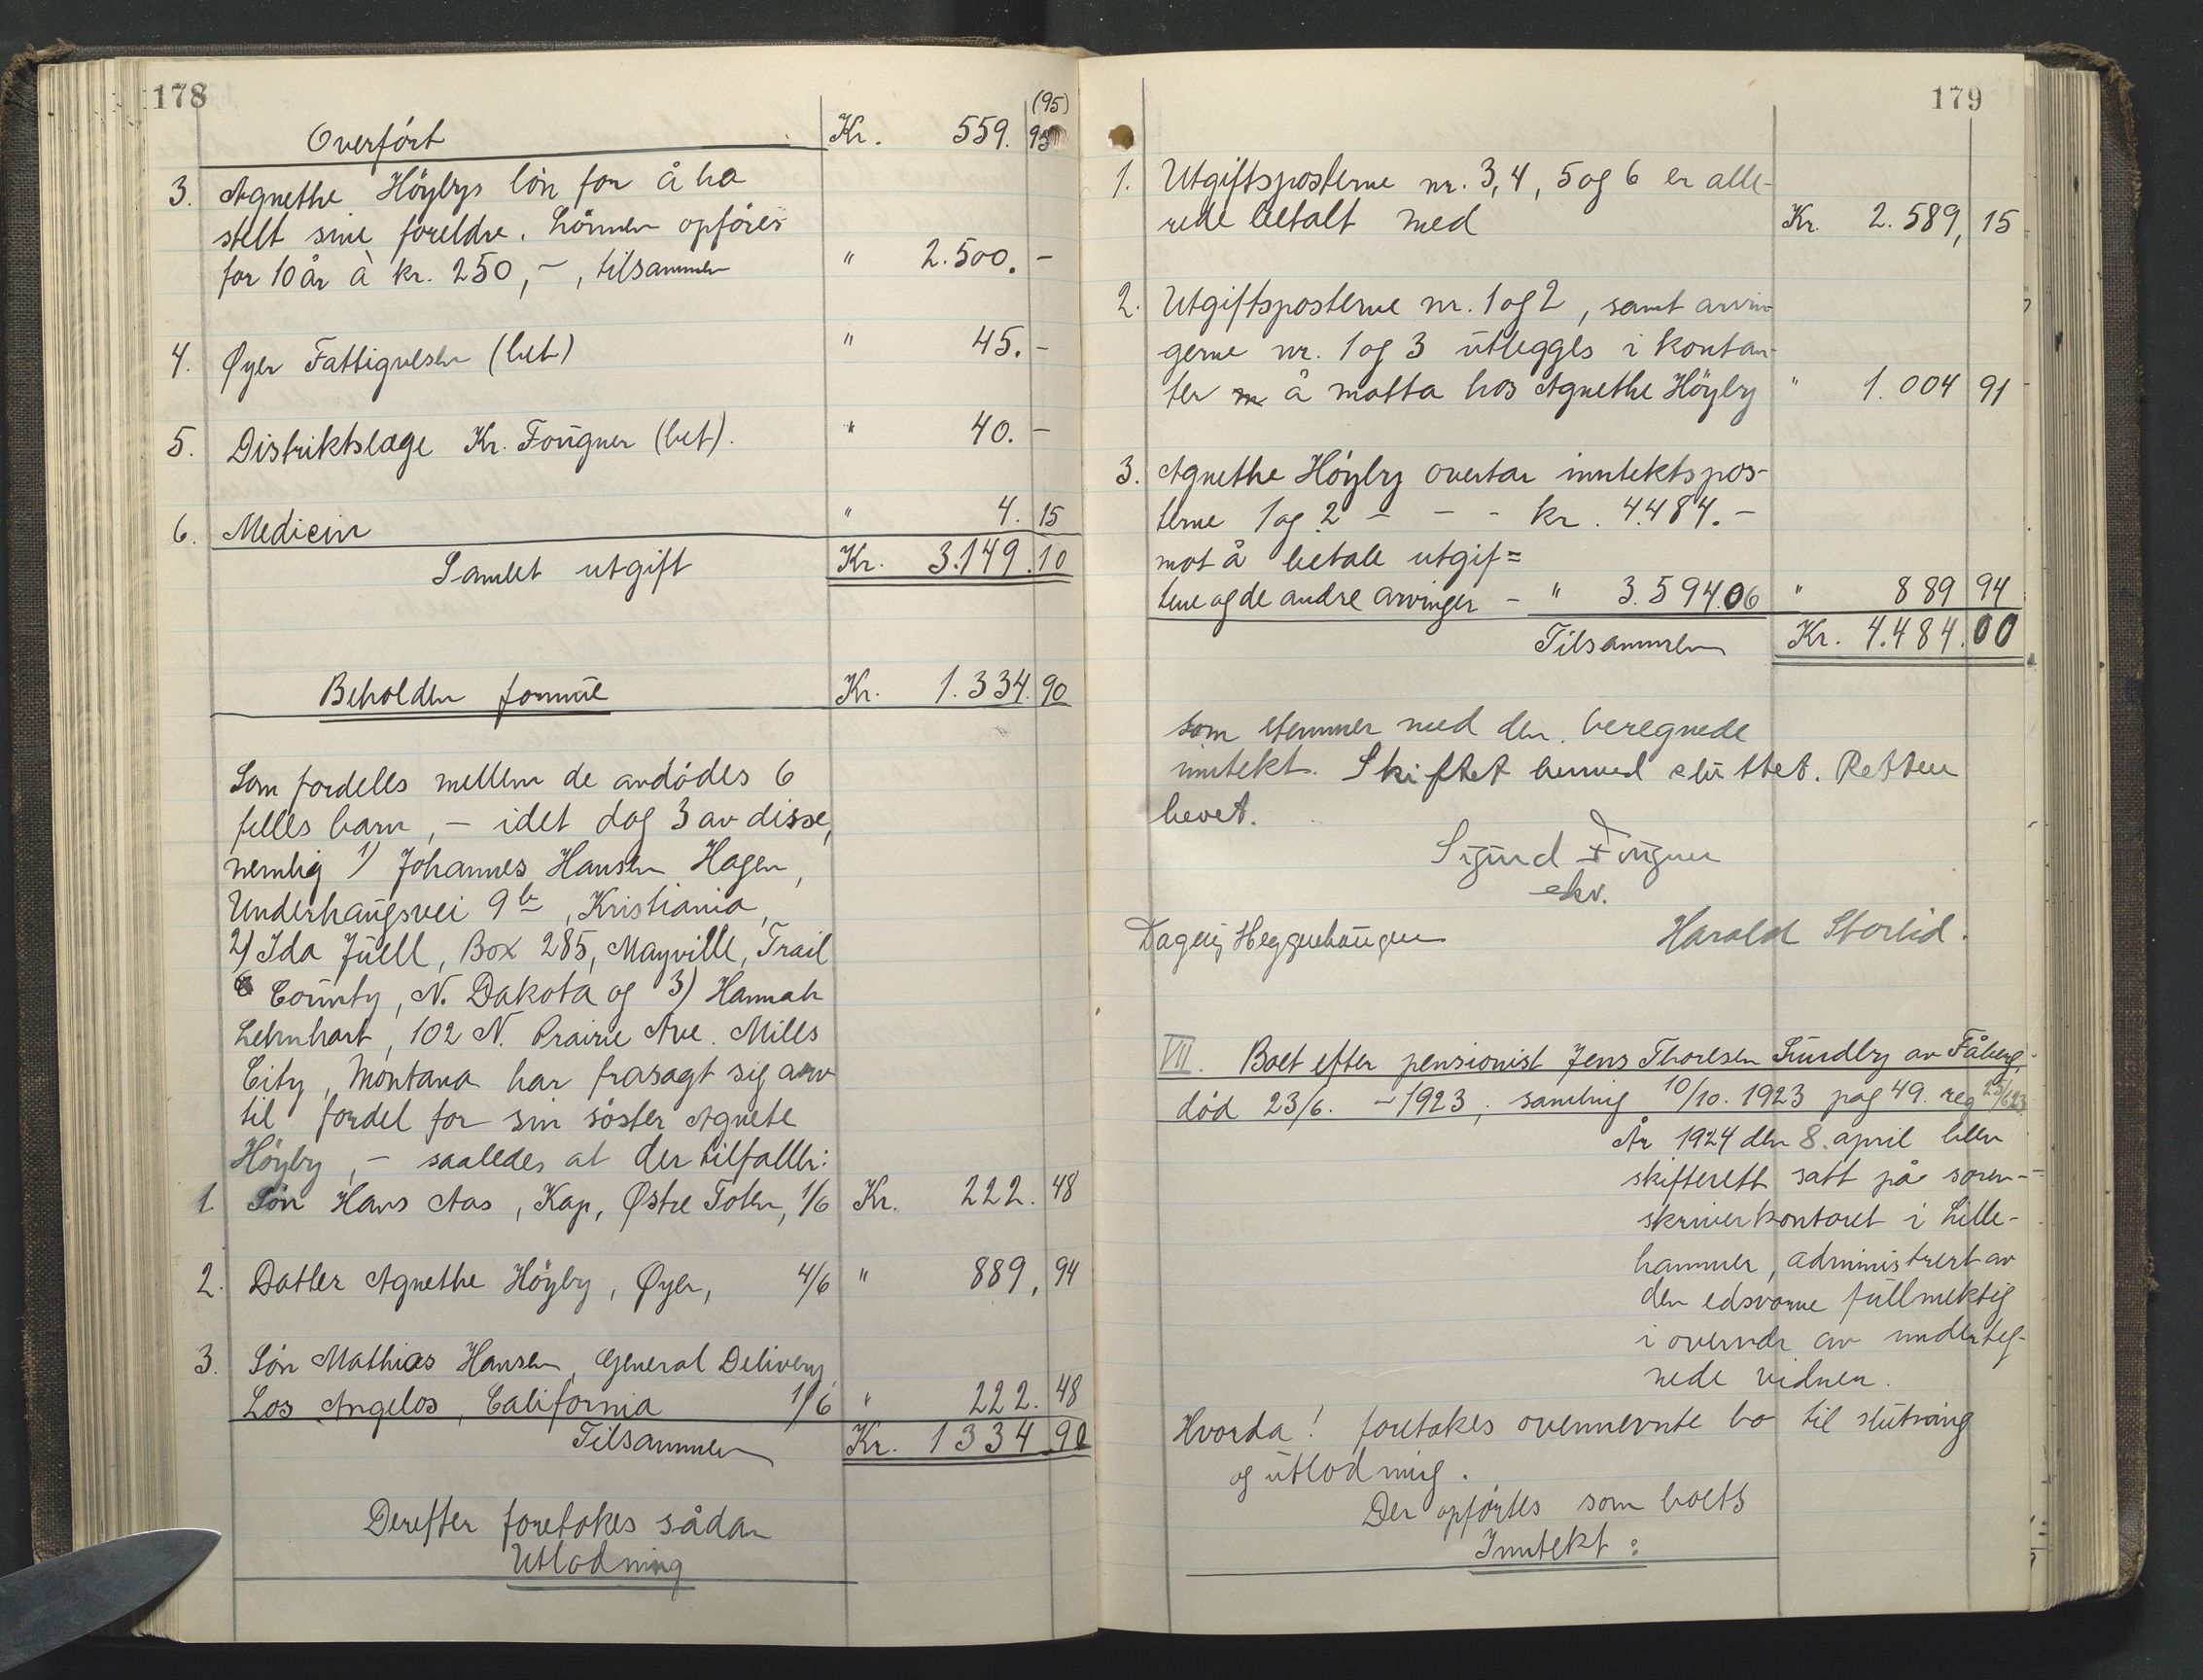 178
Overført Kr. 559. 95 (95)
3. Agnethe Höybys lön for å ha
stelt sine foreldre. Lönnen opföres
for 10 år à kr. 250,-, tilsammen " 2.500. -
4. Øyer Fattigvesen (bet) " 45. -
5. Distriktslæge Kr. Fougner (bet). " 40. -
6. Medicin " 4. 15
Samlet utgift Kr. 3.149. 10
Beholden formue Kr. 1.334. 90
Som fordeles mellem de avdödes 6
felles barn, - idet dog 3 av disse,
nemlig 1) Johannes Hansen Hagen,
Underhaugsvei 9 b, Kristiania,
2) Ida Juell, Box 285, Mayville, Trail
County, N. Dakota og 3) Hannah
Lehnhart, 102 N. Prairie Ave. Miles
City, Montana har frasagt sig arv
til fordel for sin söster Agnete
Höyby, - saaledes at der tilfaller:
1. Sön Hans Aas, Kap, Østre Toten, 1/6 Kr. 222. 48
2. Datter Agnethe Höyby, Øyer, 4/6 " 889, 94
3. Sön Mathias Hansen, General Delivery,
Los Angelos, California 1/6 " 222. 48
Tilsammen Kr. 1334. 90
Derefter foretokes sådan
Utlodning
179
1. Utgiftsposterne nr. 3, 4, 5 og 6 er alle-
rede betalt med Kr. 2.589, 15
2. Utgiftsposterne nr. 1 og 2, samt arvin-
gerne nr. 1 og 3 utlegges i kontan-
ter å motta hos Agnethe Höyby " 1.004 91
3. Agnethe Höyby overtar inntektspos-
terne 1 og 2 - - - kr. 4.484. -
mot å betale utgif=
tene og de andre arvinger - " 3.594.06 " 889 94
Tilsammen Kr. 4.484. 00
som stemmer med den beregnede
inntekt. Skiftet hermed sluttet. Retten
hevet.
Sigurd Fougner
eskv.
Dagny Heggenhaugen Harald Storlid.
VII. Boet efter pensionist Jens Thoresen Sundby av Fåberg,
död 23/6. - 1923, samling 10/10. 1923 pag 49. reg 25/6 23
År 1924 den 8. april blev
skifterett satt på soren-
skriverkontoret i Lille-
hammer, administrert av
den edsvorne fullmektig
i overvær av underteg-
nede vidner.
Hvorda! foretokes ovennevnte bo til slutning
og utlodning.
Der opförtes som boets
Inntekt: